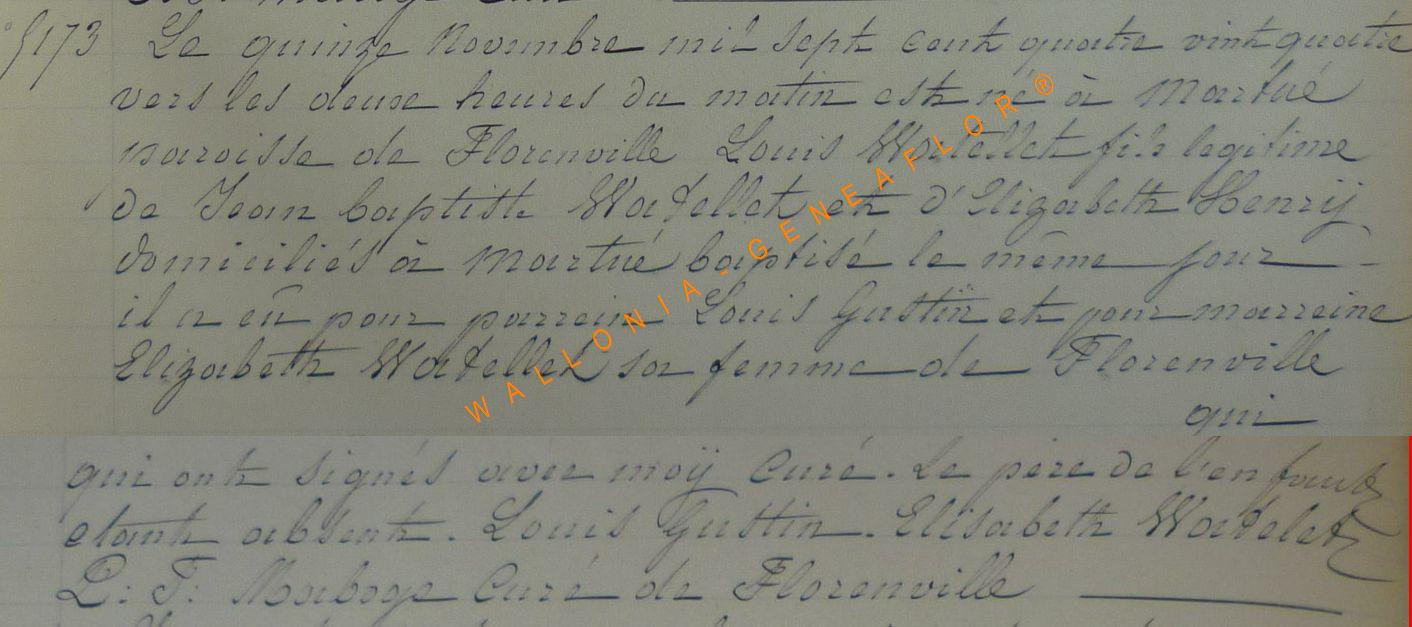 5173 Le quinze Novembre mil sept cent quatre vint quatre
vers les deux heures du matin est né à Martué
paroisse de Florenville Louis Watellet fils legitime
de Jean baptiste Watellet et d'Elizabeth Henrij
domiciliés à Martué baptisé le même jour
il a eu pour parrein Louis Gustin et pour marreine
Elizabeth Watellet sa femme de Florenville
qui
qui ont signés avec moÿ Curé. Le père de l'enfant
etant absent. Louis Gustin. Elisabeth Watelet
Curé de Florenville
WALLONIA - GENEAFLOR ®